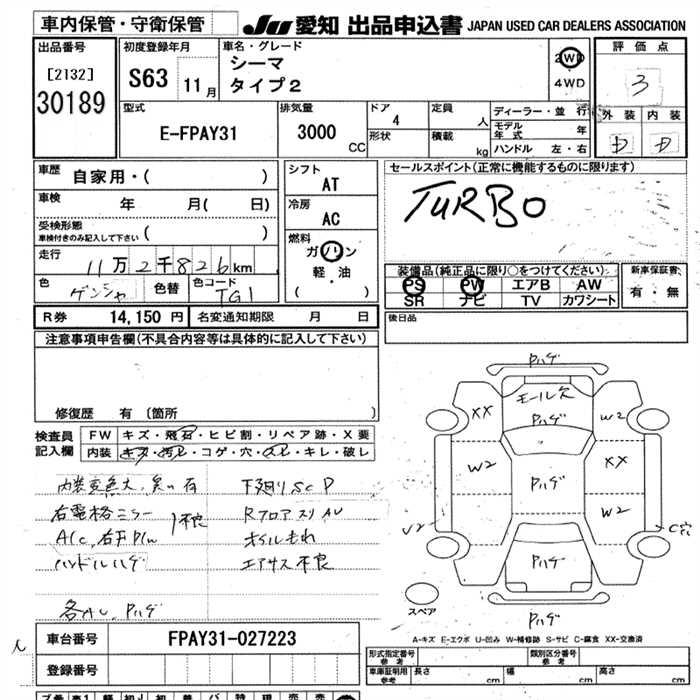 車内保管・守衛保管
JU 愛知 出品申込書 JAPAN USED CAR DEALERS ASSOCIATION
出品番号
[2132]
30189
初度登録年月
S63 11月
車名・グレード
シーマ
タイプ2
2WD
4WD
評価点
3
外装 内装
D D
型式
E-FPAY31
排気量
3000
CC
ドア
4
形状
定員
人
積載
kg
ディーラー・並行
モデル年式 年
ハンドル 左・右
車歴
自家用・( )
車検 年 月( 日)
受検形態
車検付きのみ記入して下さい ( )
走行 11万2千826km
色 ゲンシャ 色替 色コード TG1
シフト
AT
冷房
AC
燃料
ガソリン
軽・油
( )
セールスポイント(正常に機能するものに限ります)
TURBO
装備品(純正品に限り○をつけてください)
PS PW エアB AW
SR ナビ TV カワシート
新車保証書
有・無
R券 14,150 円 名変通知期限 月 日
後日品
注意事項申告欄(不具合内容等は具体的に記入して下さい)
修復歴 有 (箇所
検査員記入欄
FW キズ・飛石・ヒビ割・リペア跡・X要
内装 キズ・汚レ・コゲ・穴・スレ・キレ・破レ
内装変色大、黒い 有
右電格ミラー
A/C、右F P/W 不良
ハンドルハゲ
各かし、Pハゲ
下廻りSC P
RフロアスリAU
オイルもれ
エアサス不良
Pハゲ
モール欠
Pハゲ
XX
W2
W2
XX
Pハゲ
W2
V2
C穴
Pハゲ
Pハゲ
スペア
A-キズ E-エクボ U-凹み W-補修跡 S-サビ C-腐食 XX-交換済
車台番号 FPAY31-027223
登録番号
形式指定番号
参考
類別区分番号
参考
車庫証明用
参考
長さ cm 幅 cm 高さ cm